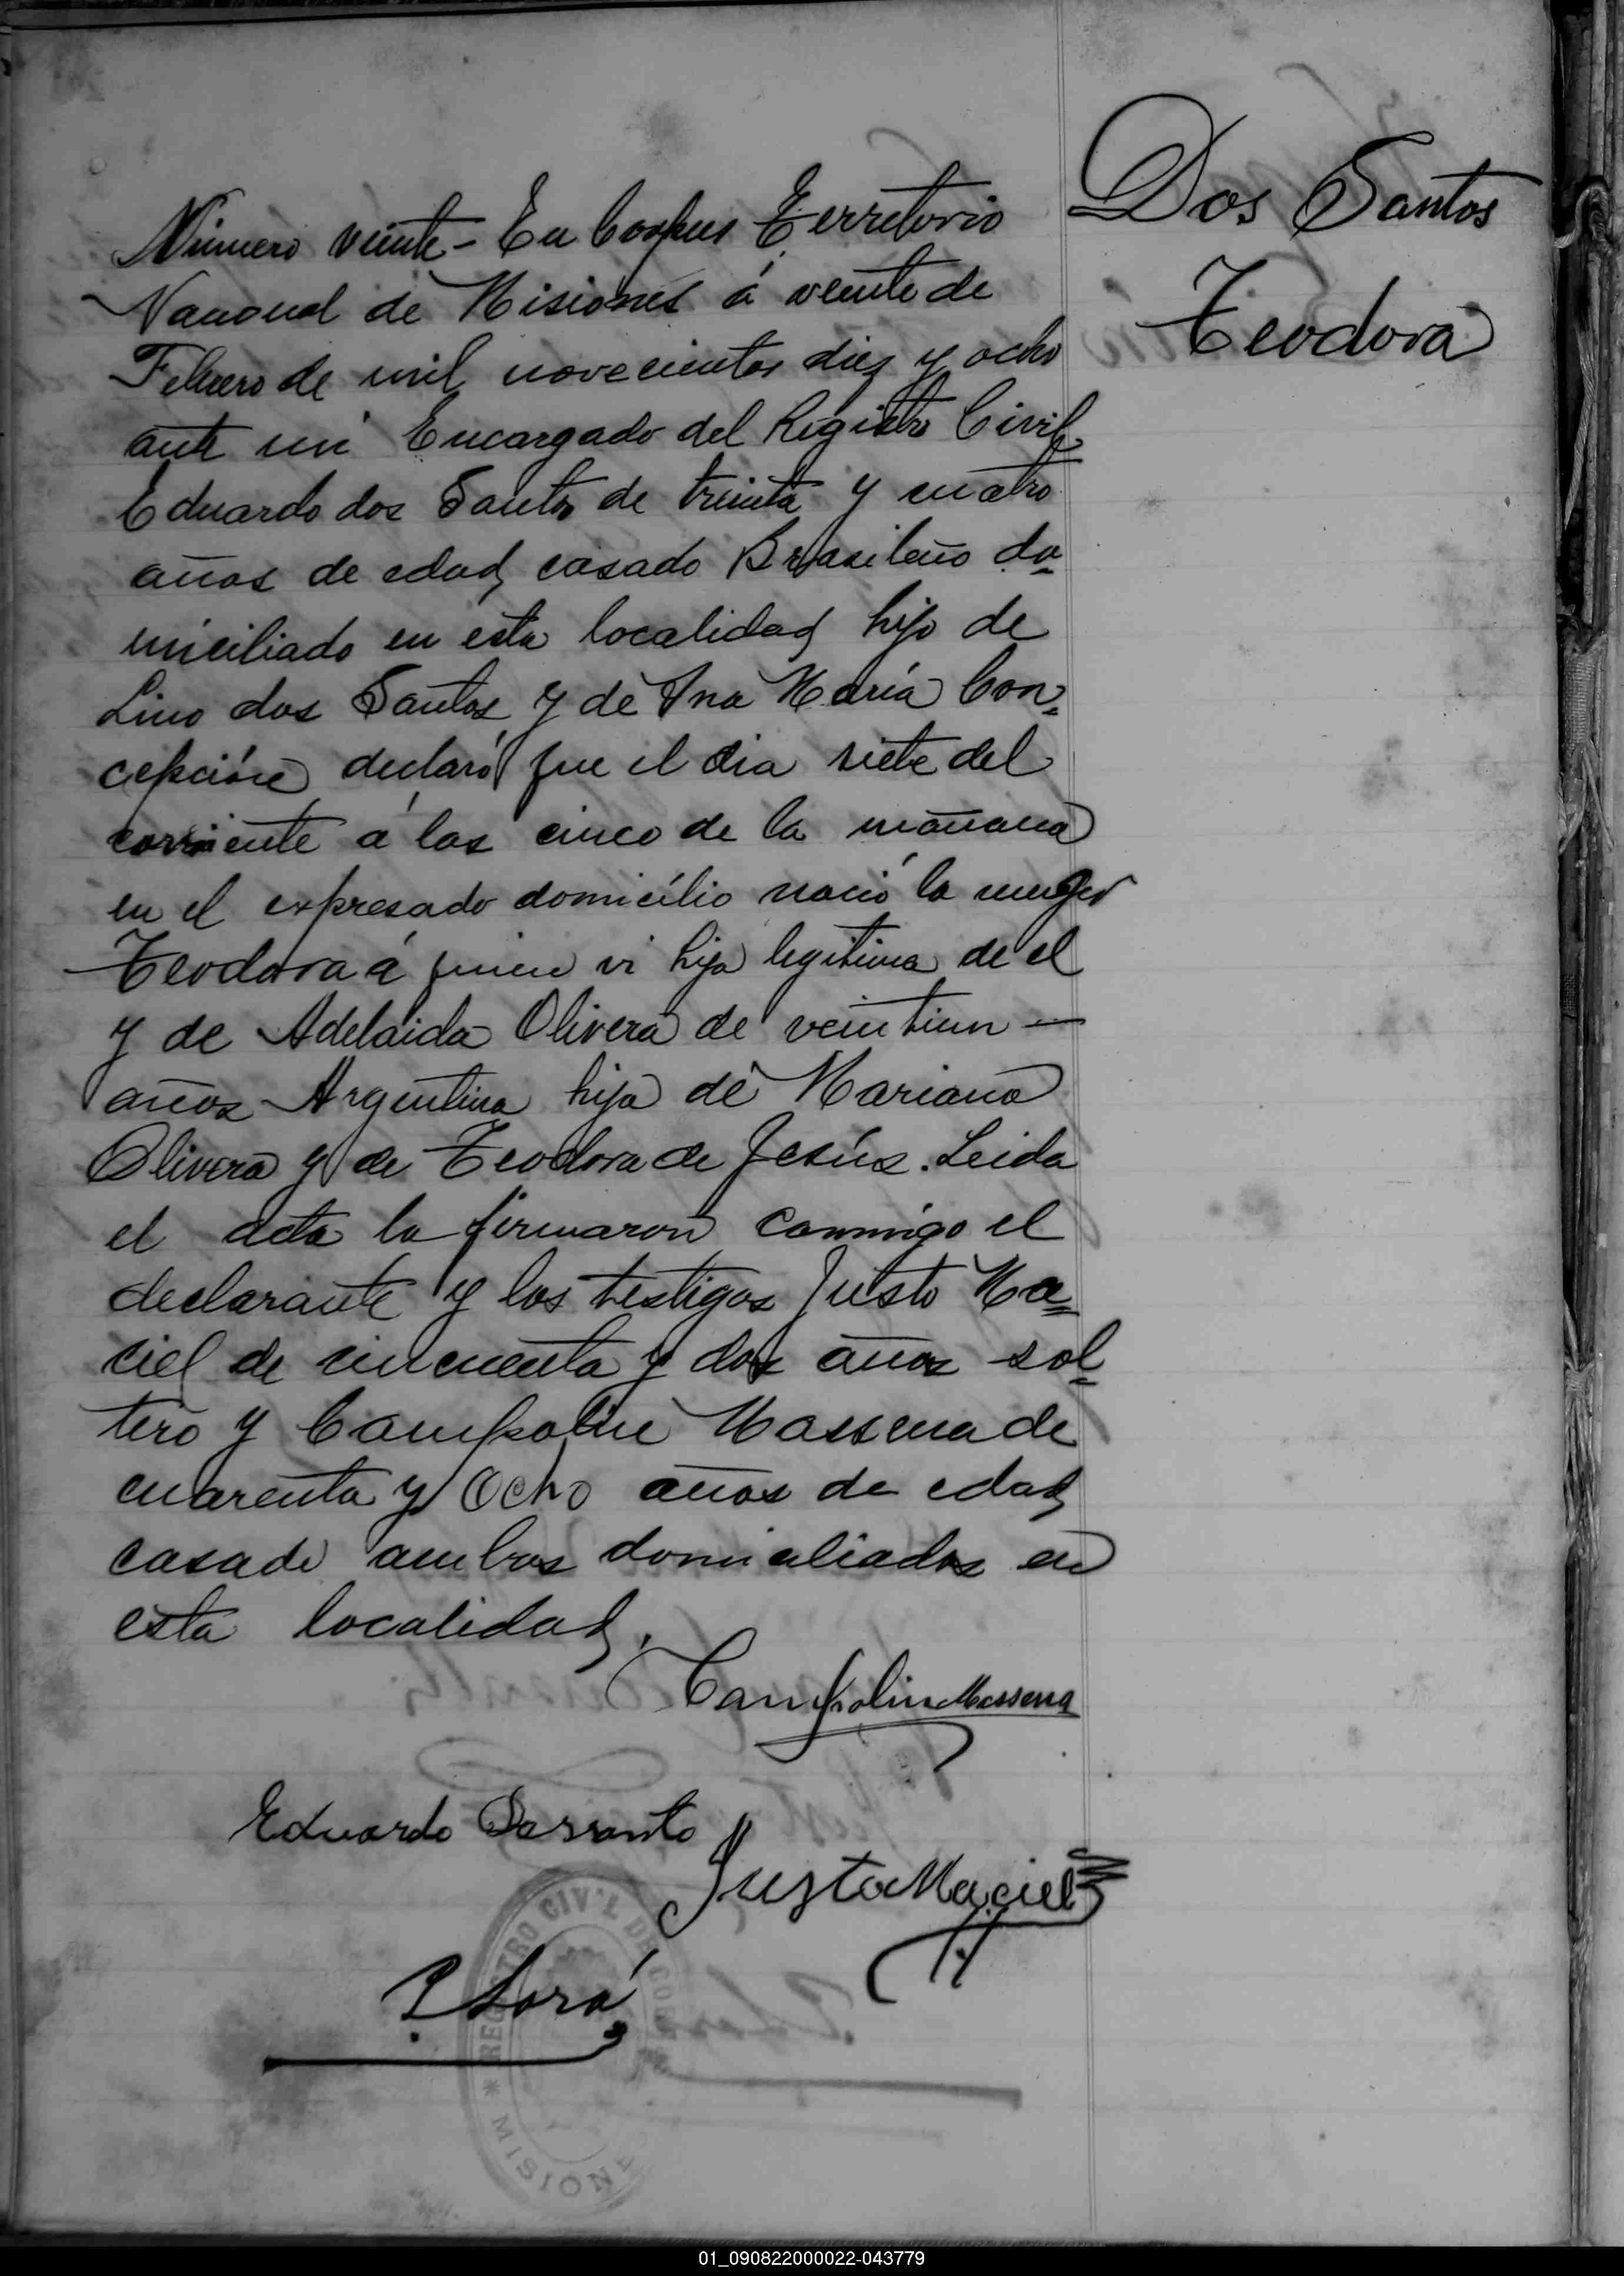 Dos Santos
Teodora
Número veinte - En Corpus Territorio
Nacional de Misiones á veinte de
Febrero de mil novecientos diez y ocho
ante mi Encargado del Registro Civil
Eduardo dos Santos de treinta y cuatro
años de edad, casado Brasileño do=
miciliado en esta localidad hijo de
Lino dos Santos y de Ana María Con=
cepción declaró que el dia siete del
corriente á las cinco de la mañana
en el expresado domicilio nació la muger
Teodora á quien vi hija legitima de el
y de Adelaida Olivera de veintiun -
años Argentina hija de Mariano
Olivera y de Teodora de Jesús. Leida
el acta la firmaron conmigo el
declarante y los testigos Justo Ma=
ciel de cincuenta y dos años sol=
tero y Campolin Massena de
cuarenta y ocho años de edad,
casado ambos domiciliados en
esta localidad.
Campolin Massena
Eduardo Dossanto
Justo Maciel
REGISTRO CIVIL DE
MISIONES
01_090822000022-043779